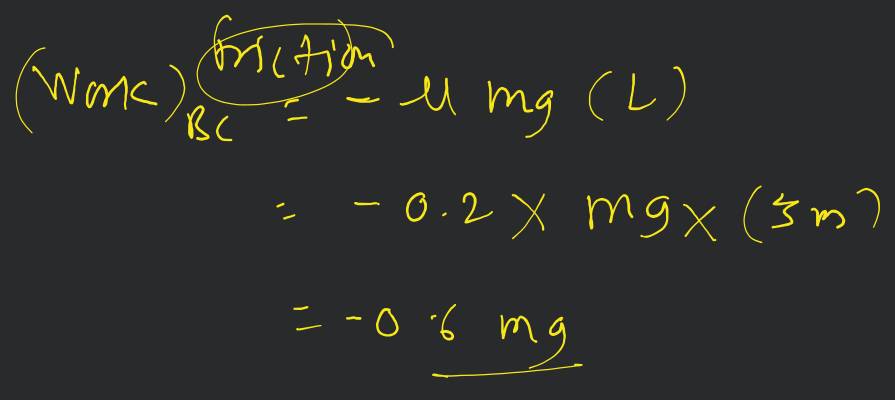 (Work)BC friction = - μ mg (L)
= - 0.2 × mg × (3m)
= - 0.6 mg